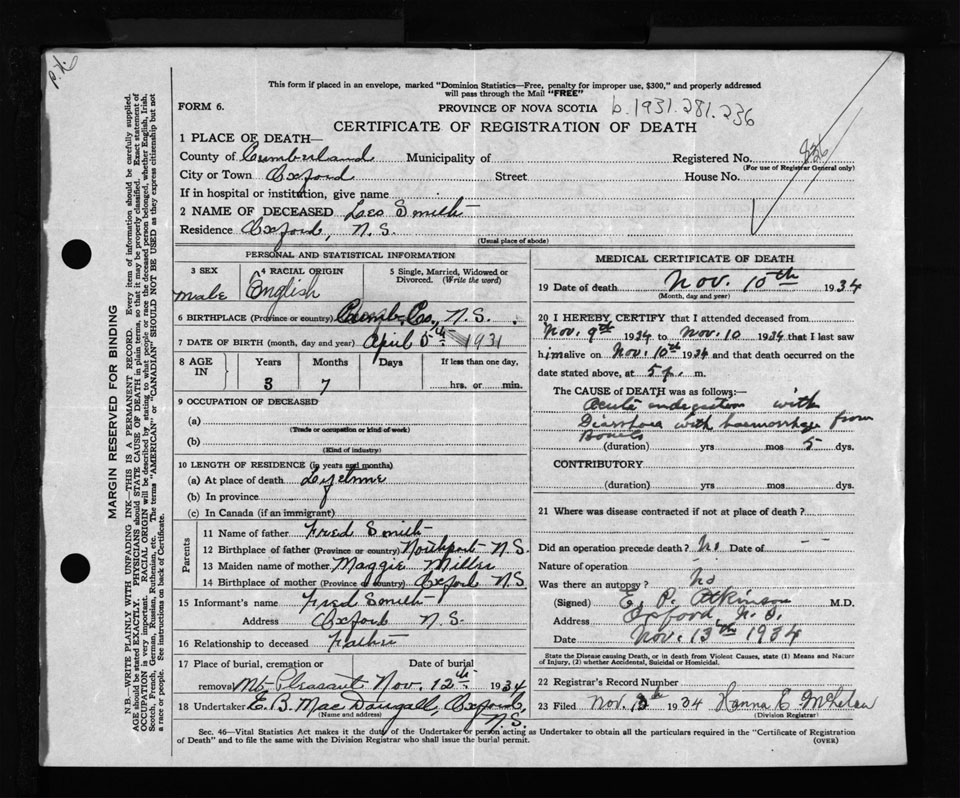 P.X.
This form if placed in an envelope, marked "Dominion Statistics—Free, penalty for improper use, $300," and properly addressed
will pass through the Mail "FREE"
FORM 6.
PROVINCE OF NOVA SCOTIA b.1931.281.236
CERTIFICATE OF REGISTRATION OF DEATH
1 PLACE OF DEATH—
County of Cumberland Municipality of Registered No. 826
(For use of Registrar General only)
City or Town Oxford Street House No.
If in hospital or institution, give name
2 NAME OF DECEASED Leo Smith
Residence Oxford, N.S.
(Usual place of abode)
PERSONAL AND STATISTICAL INFORMATION
3 SEX 4 RACIAL ORIGIN 5 Single, Married, Widowed or Divorced. (Write the word)
Male English
6 BIRTHPLACE (Province or country) Cumb. Co., N.S.
7 DATE OF BIRTH (month, day and year) April 5th 1931
8 AGE IN Years Months Days If less than one day,
3 7 hrs. or min.
9 OCCUPATION OF DECEASED
(a)
(Trade or occupation or kind of work)
(b)
(Kind of industry)
10 LENGTH OF RESIDENCE (in years and months)
(a) At place of death Lifetime
(b) In province
(c) In Canada (if an immigrant)
Parents
11 Name of father Fred Smith
12 Birthplace of father (Province or country) Northport N.S.
13 Maiden name of mother Maggie Miller
14 Birthplace of mother (Province or country) Oxford N.S.
15 Informant's name Fred Smith
Address Oxford N.S.
16 Relationship to deceased Father
17 Place of burial, cremation or Date of burial
removal Mt. Pleasant Nov. 12th 1934
18 Undertaker E. B. MacDougall, Oxford,
(Name and address) N.S.
MEDICAL CERTIFICATE OF DEATH
19 Date of death Nov. 10th 1934
(Month, day and year)
20 I HEREBY CERTIFY that I attended deceased from
Nov. 9th 1934 to Nov. 10 1934 that I last saw
him alive on Nov. 10th 1934 and that death occurred on the
date stated above, at 5 p. m.
The CAUSE OF DEATH was as follows:—
Acute indigestion with
Diarrhoea with haemorrhage from
Bowels
(duration) yrs mos 5 dys.
CONTRIBUTORY
(duration) yrs mos dys.
21 Where was disease contracted if not at place of death?
Did an operation precede death? No Date of - -
Nature of operation
Was there an autopsy? No
(Signed) E. P. Atkinson M.D.
Address Oxford N.S.
Date Nov. 13th 1934
State the Disease causing Death, or in death from Violent Causes, state (1) Means and Nature
of Injury, (2) whether Accidental, Suicidal or Homicidal.
22 Registrar's Record Number
23 Filed Nov. 1934 Hanna E.
(Division Registrar)
Sec. 46—Vital Statistics Act makes it the duty of the Undertaker or person acting as Undertaker to obtain all the particulars required in the "Certificate of Registration
of Death" and to file the same with the Division Registrar who shall issue the burial permit. (OVER)
MARGIN RESERVED FOR BINDING
N.B.—WRITE PLAINLY WITH UNFADING INK—THIS IS A PERMANENT RECORD. Every item of information should be carefully supplied.
AGE should be stated EXACTLY. PHYSICIANS should STATE CAUSE OF DEATH in plain terms, so that it may be properly classified. Exact statement of
OCCUPATION is very important. RACIAL ORIGIN will be described by stating to what people or race the deceased person belonged, whether English, Irish,
Scotch, French, German, Russian, Ruthenian, etc. The terms "AMERICAN" or "CANADIAN" SHOULD NOT BE USED as they express citizenship but not
a race or people. See instructions on back of Certificate.